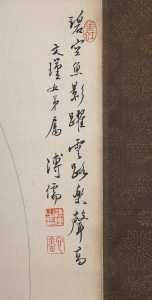 碧空魚影躍雲路樂聲高
文瑾女弟屬
溥儒